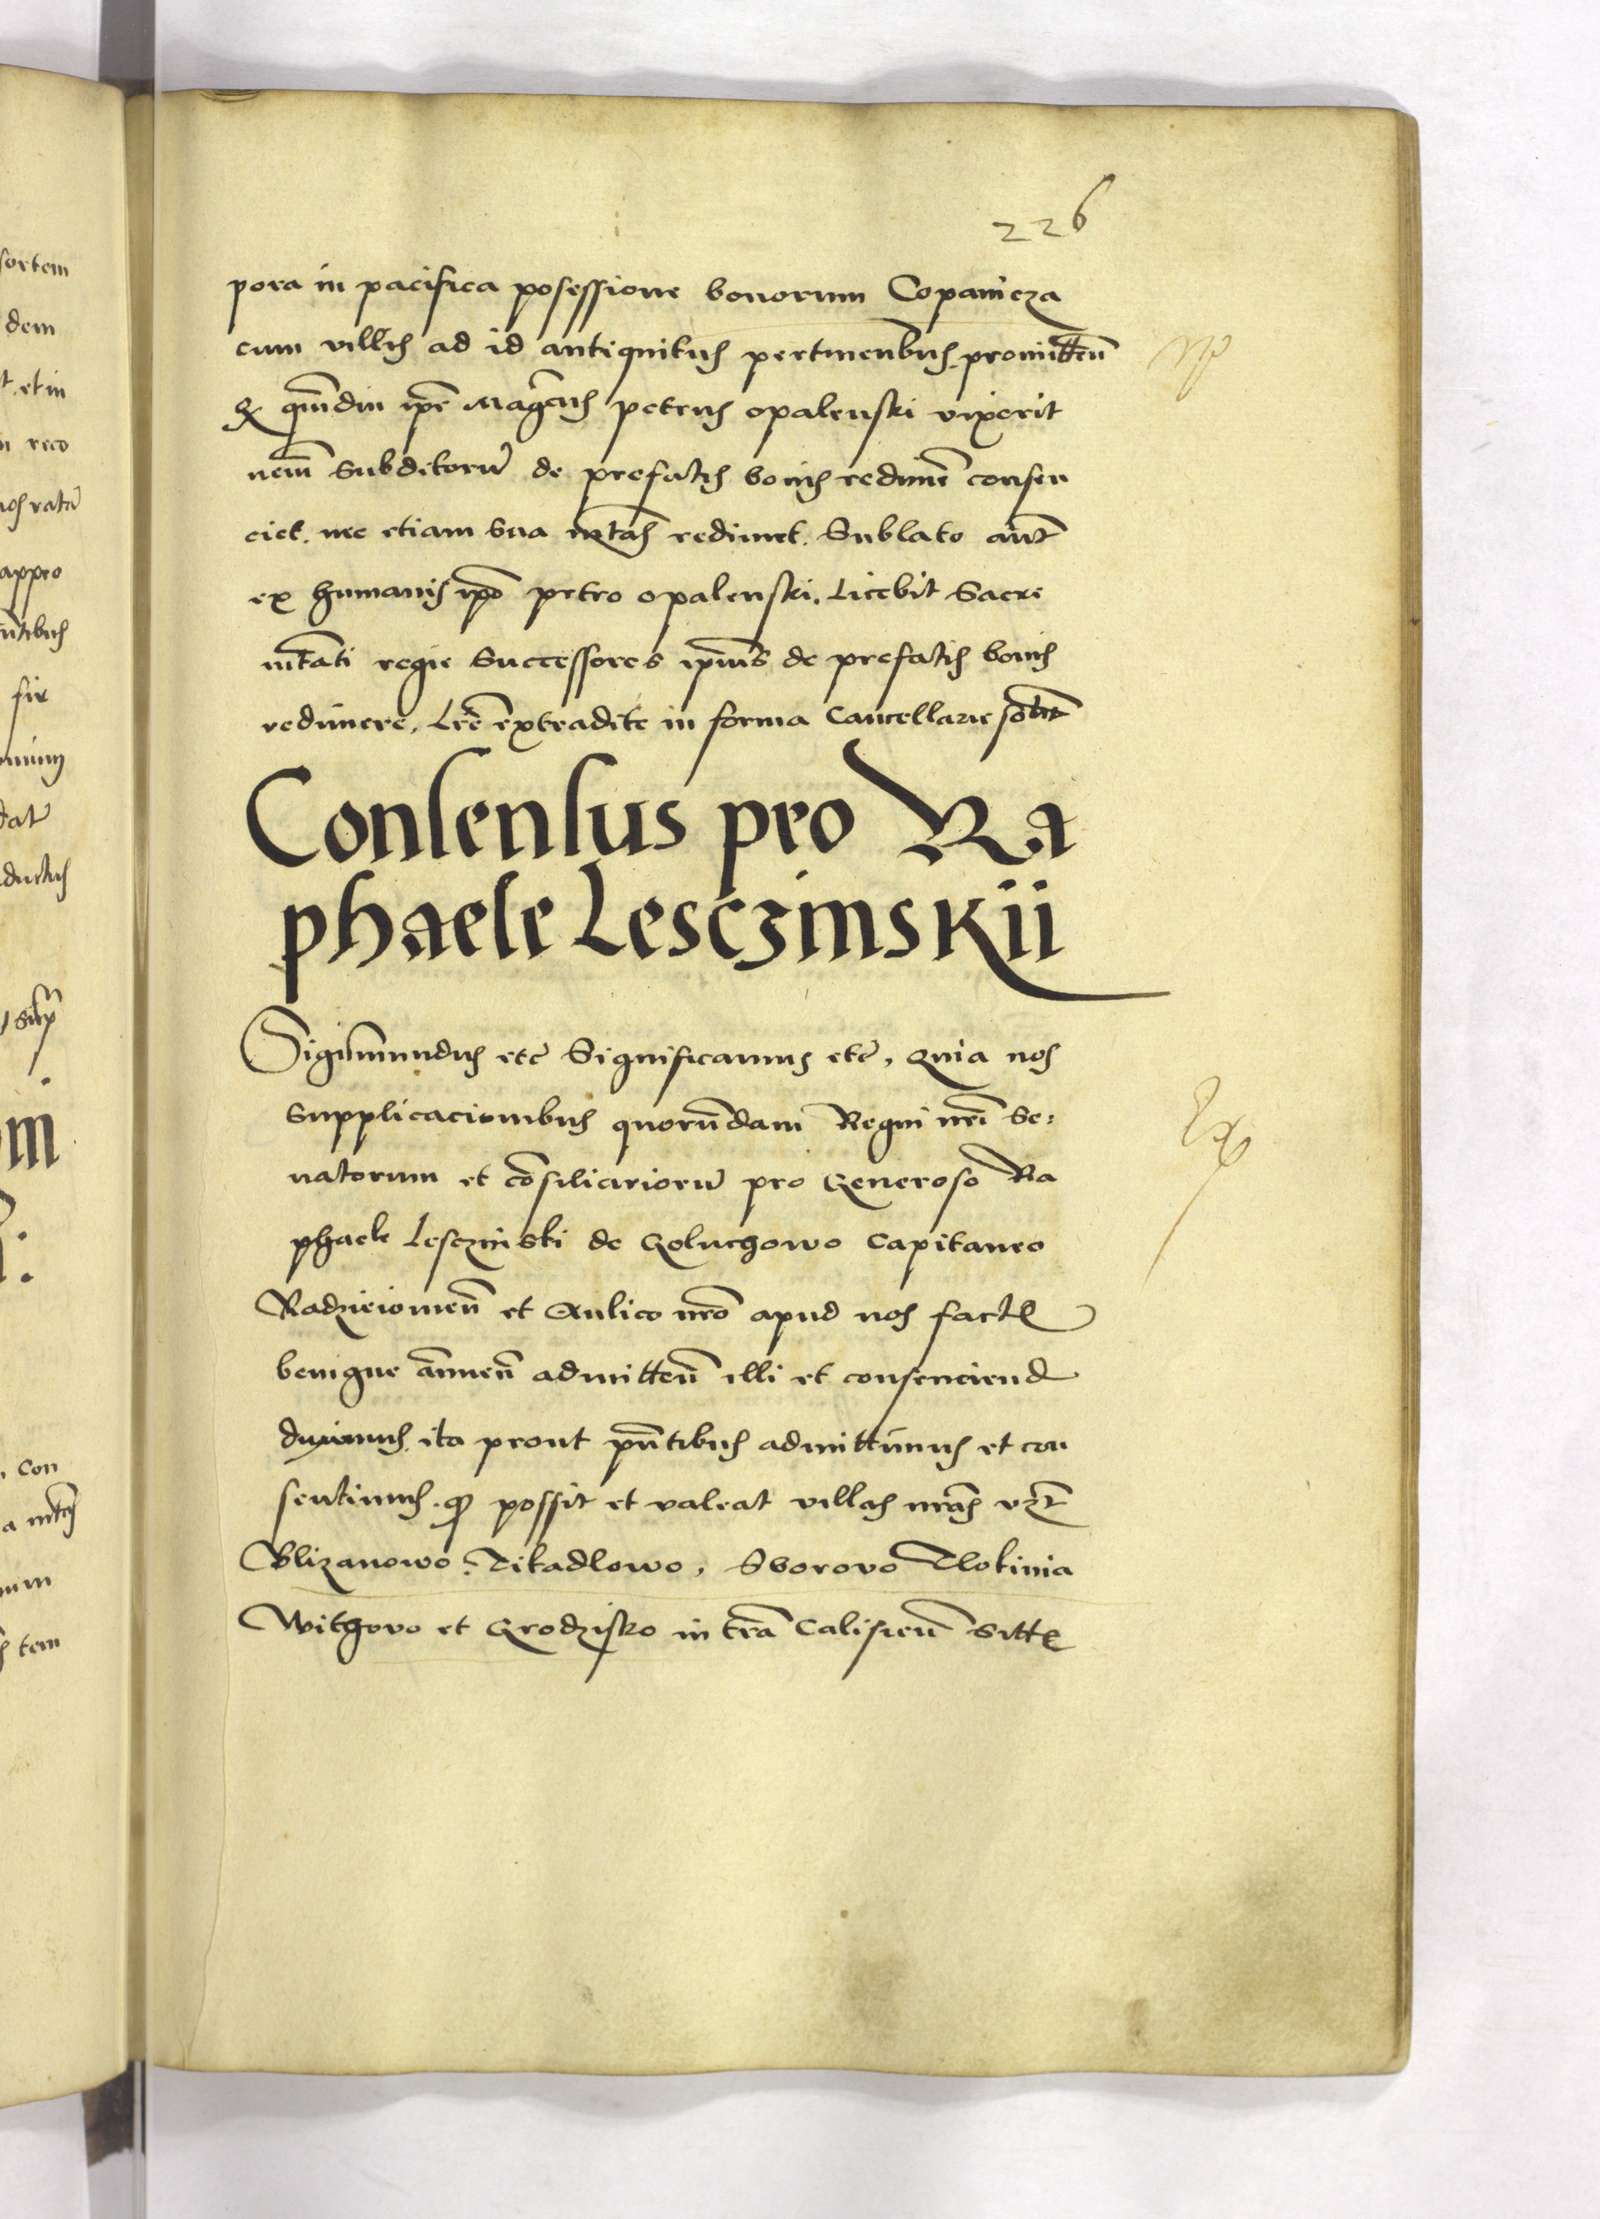 226
pora in pacifica posessione bonorum Copanicza
cum villis ad id antiquitus pertinenbus promitteñ
qm̄diu ip̄e Magcus petrus opalenski vixerit
nemī Subditorum de prefatis bonis redimē consen
ciet. nec etiam Sua mtas redimet. Sublato aut̄
ex humanis ip̄o petro opalenski. Licebit Sacre
mtati regie Successores ipius de prefatis bonis
redimere. Lrē extradite in forma Cancellarie solit
Consensus pro Ra
phaele Lesczinskii
Sigismundus etc Significamus etc, Quia nos
Supplicacionibus quorūdam Regni nr̄i Se:
natorum et cōsiliariorum pro Generoso Ra
phaele Lesczinski de Goluchowo Capitaneo
Radzieiowieñ et Aulico nr̄o apud nos factis
benigne ānueñ admitteñ illi et consenciend
duximus ita prout pn̄tibus admittimus et con
sentimus. qd possit et valeat villas nr̄as vzt
Blizanowo. Zikadlowo, Sborovo Tlokinia
Withovo et Grodzisko in trā Calisieñ Sitte